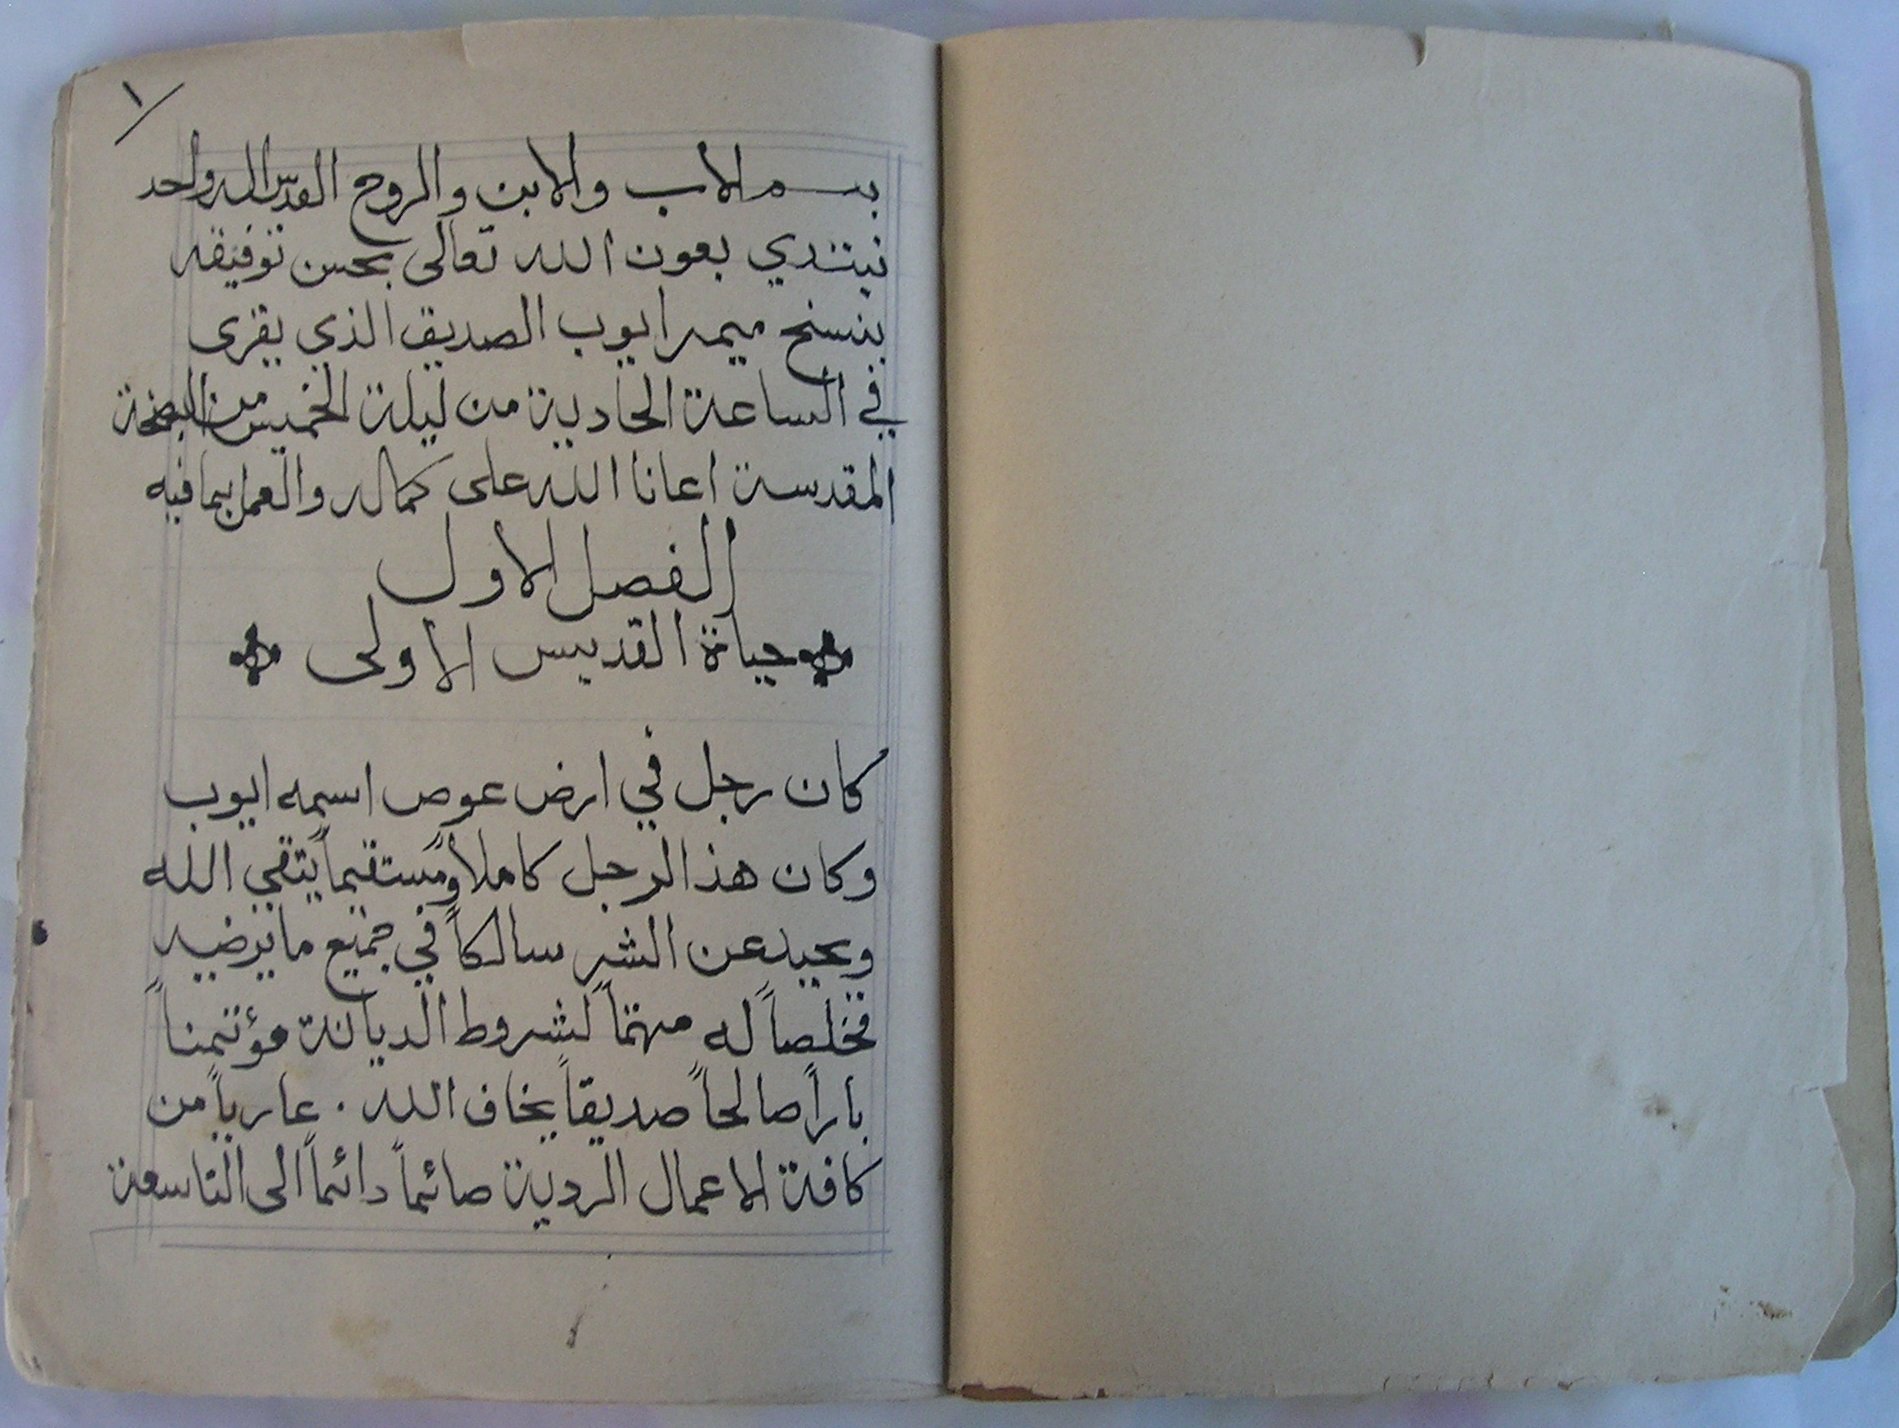 ١
بسم الاب والابن والروح القدس اله واحد
نبتدي بعون الله تعالى بحسن توفيقه
بنسخ ميمر ايوب الصديق الذي يقرى
في الساعة الحادية من ليلة الخميس من البصخة
المقدسة اعانا الله على كماله والعمل بما فيه
الفصل الاول
حياة القديس الاولى
كان رجل في ارض عوص اسمه ايوب
وكان هذا الرجل كاملاً ومستقيماً يتقي الله
ويحيد عن الشر سالكاً في جميع ما يرضيه
مخلصاً له مهتماً لشروط الديانة مؤتمناً
باراً صالحاً صديقاً يخاف الله . عارياً من
كافة الاعمال الردية صائماً دائماً الى التاسعة